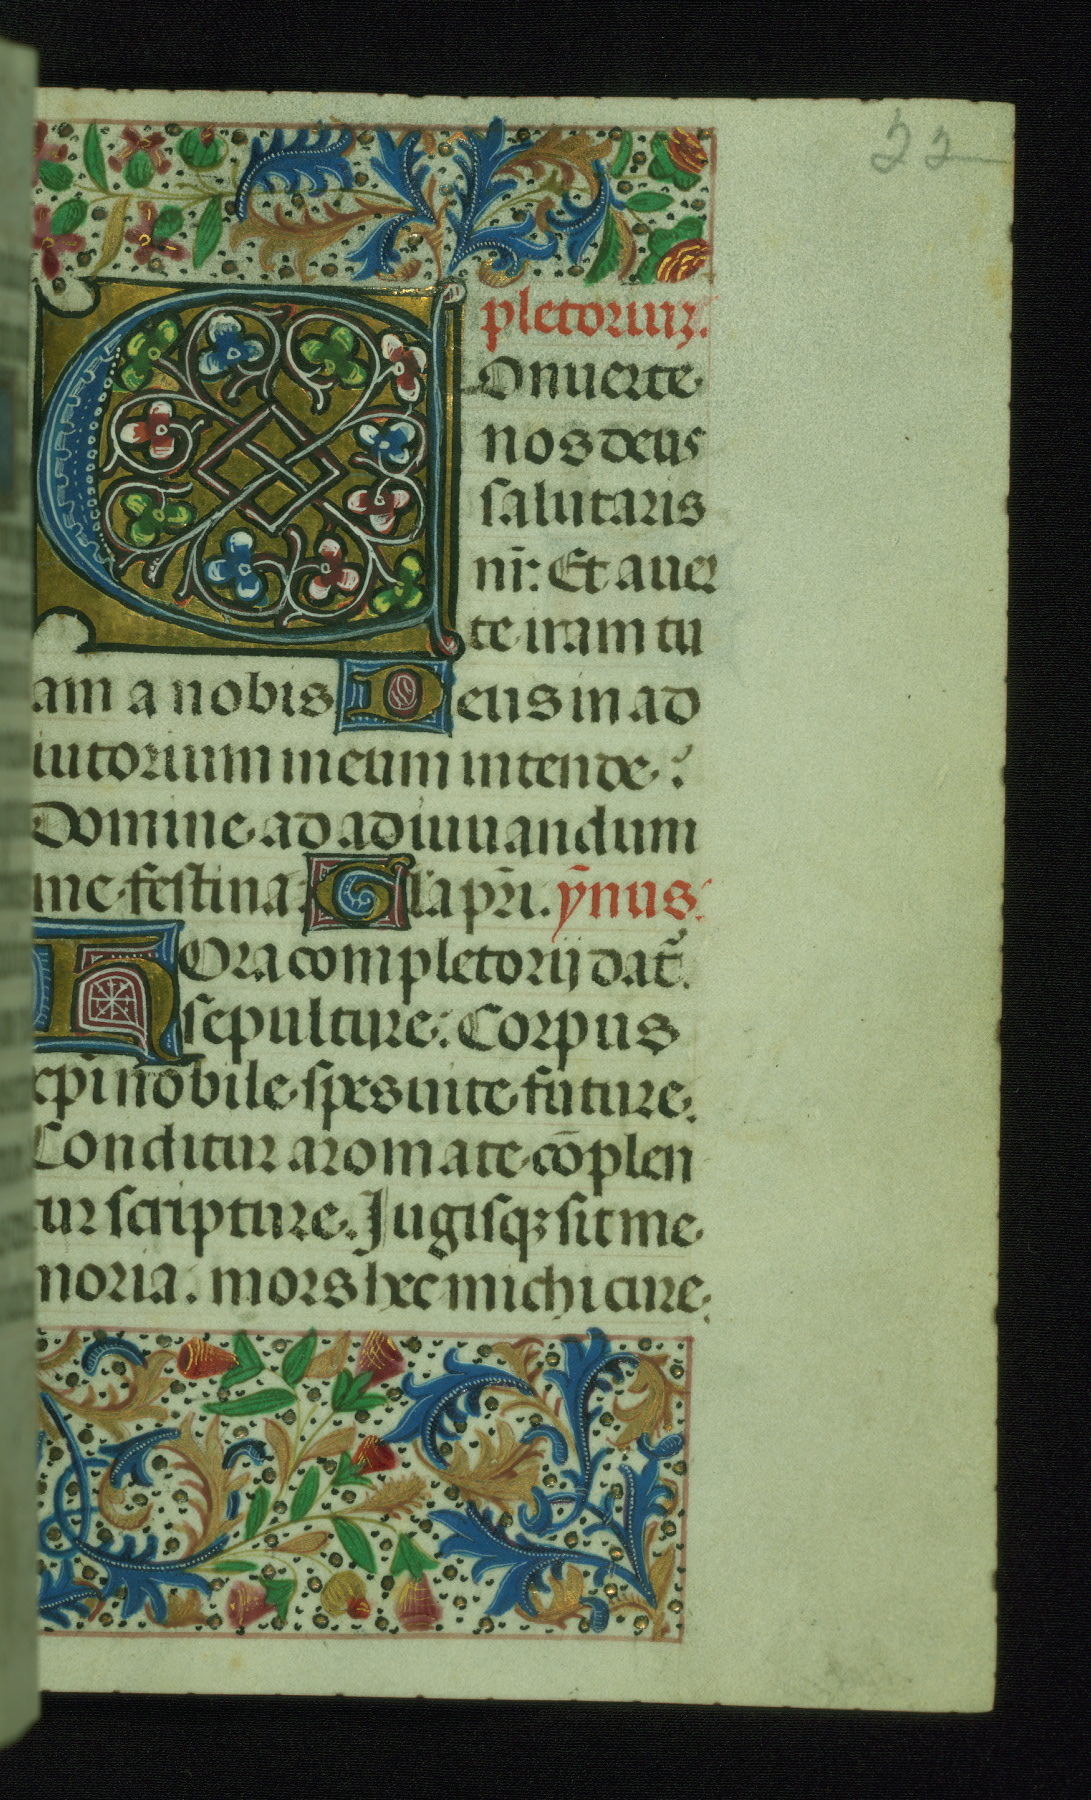 22
pletoriuʒ.
COnuerte
nos deus
salutaris
nr̄: Et auer
te iram tu
am a nobis Deus in ad
iutorium meum intende:
Domine ad adiuuandum
me festina: Gl'a pr̄i. ȳnus.
HOra completorij dat᷒.
sepulture: Corpus
xp̄i nobile spes uite future.
Conditur aromate cōplen
tur scripture. Jugisqꝫ sit me
moria. mors hec michi cure.